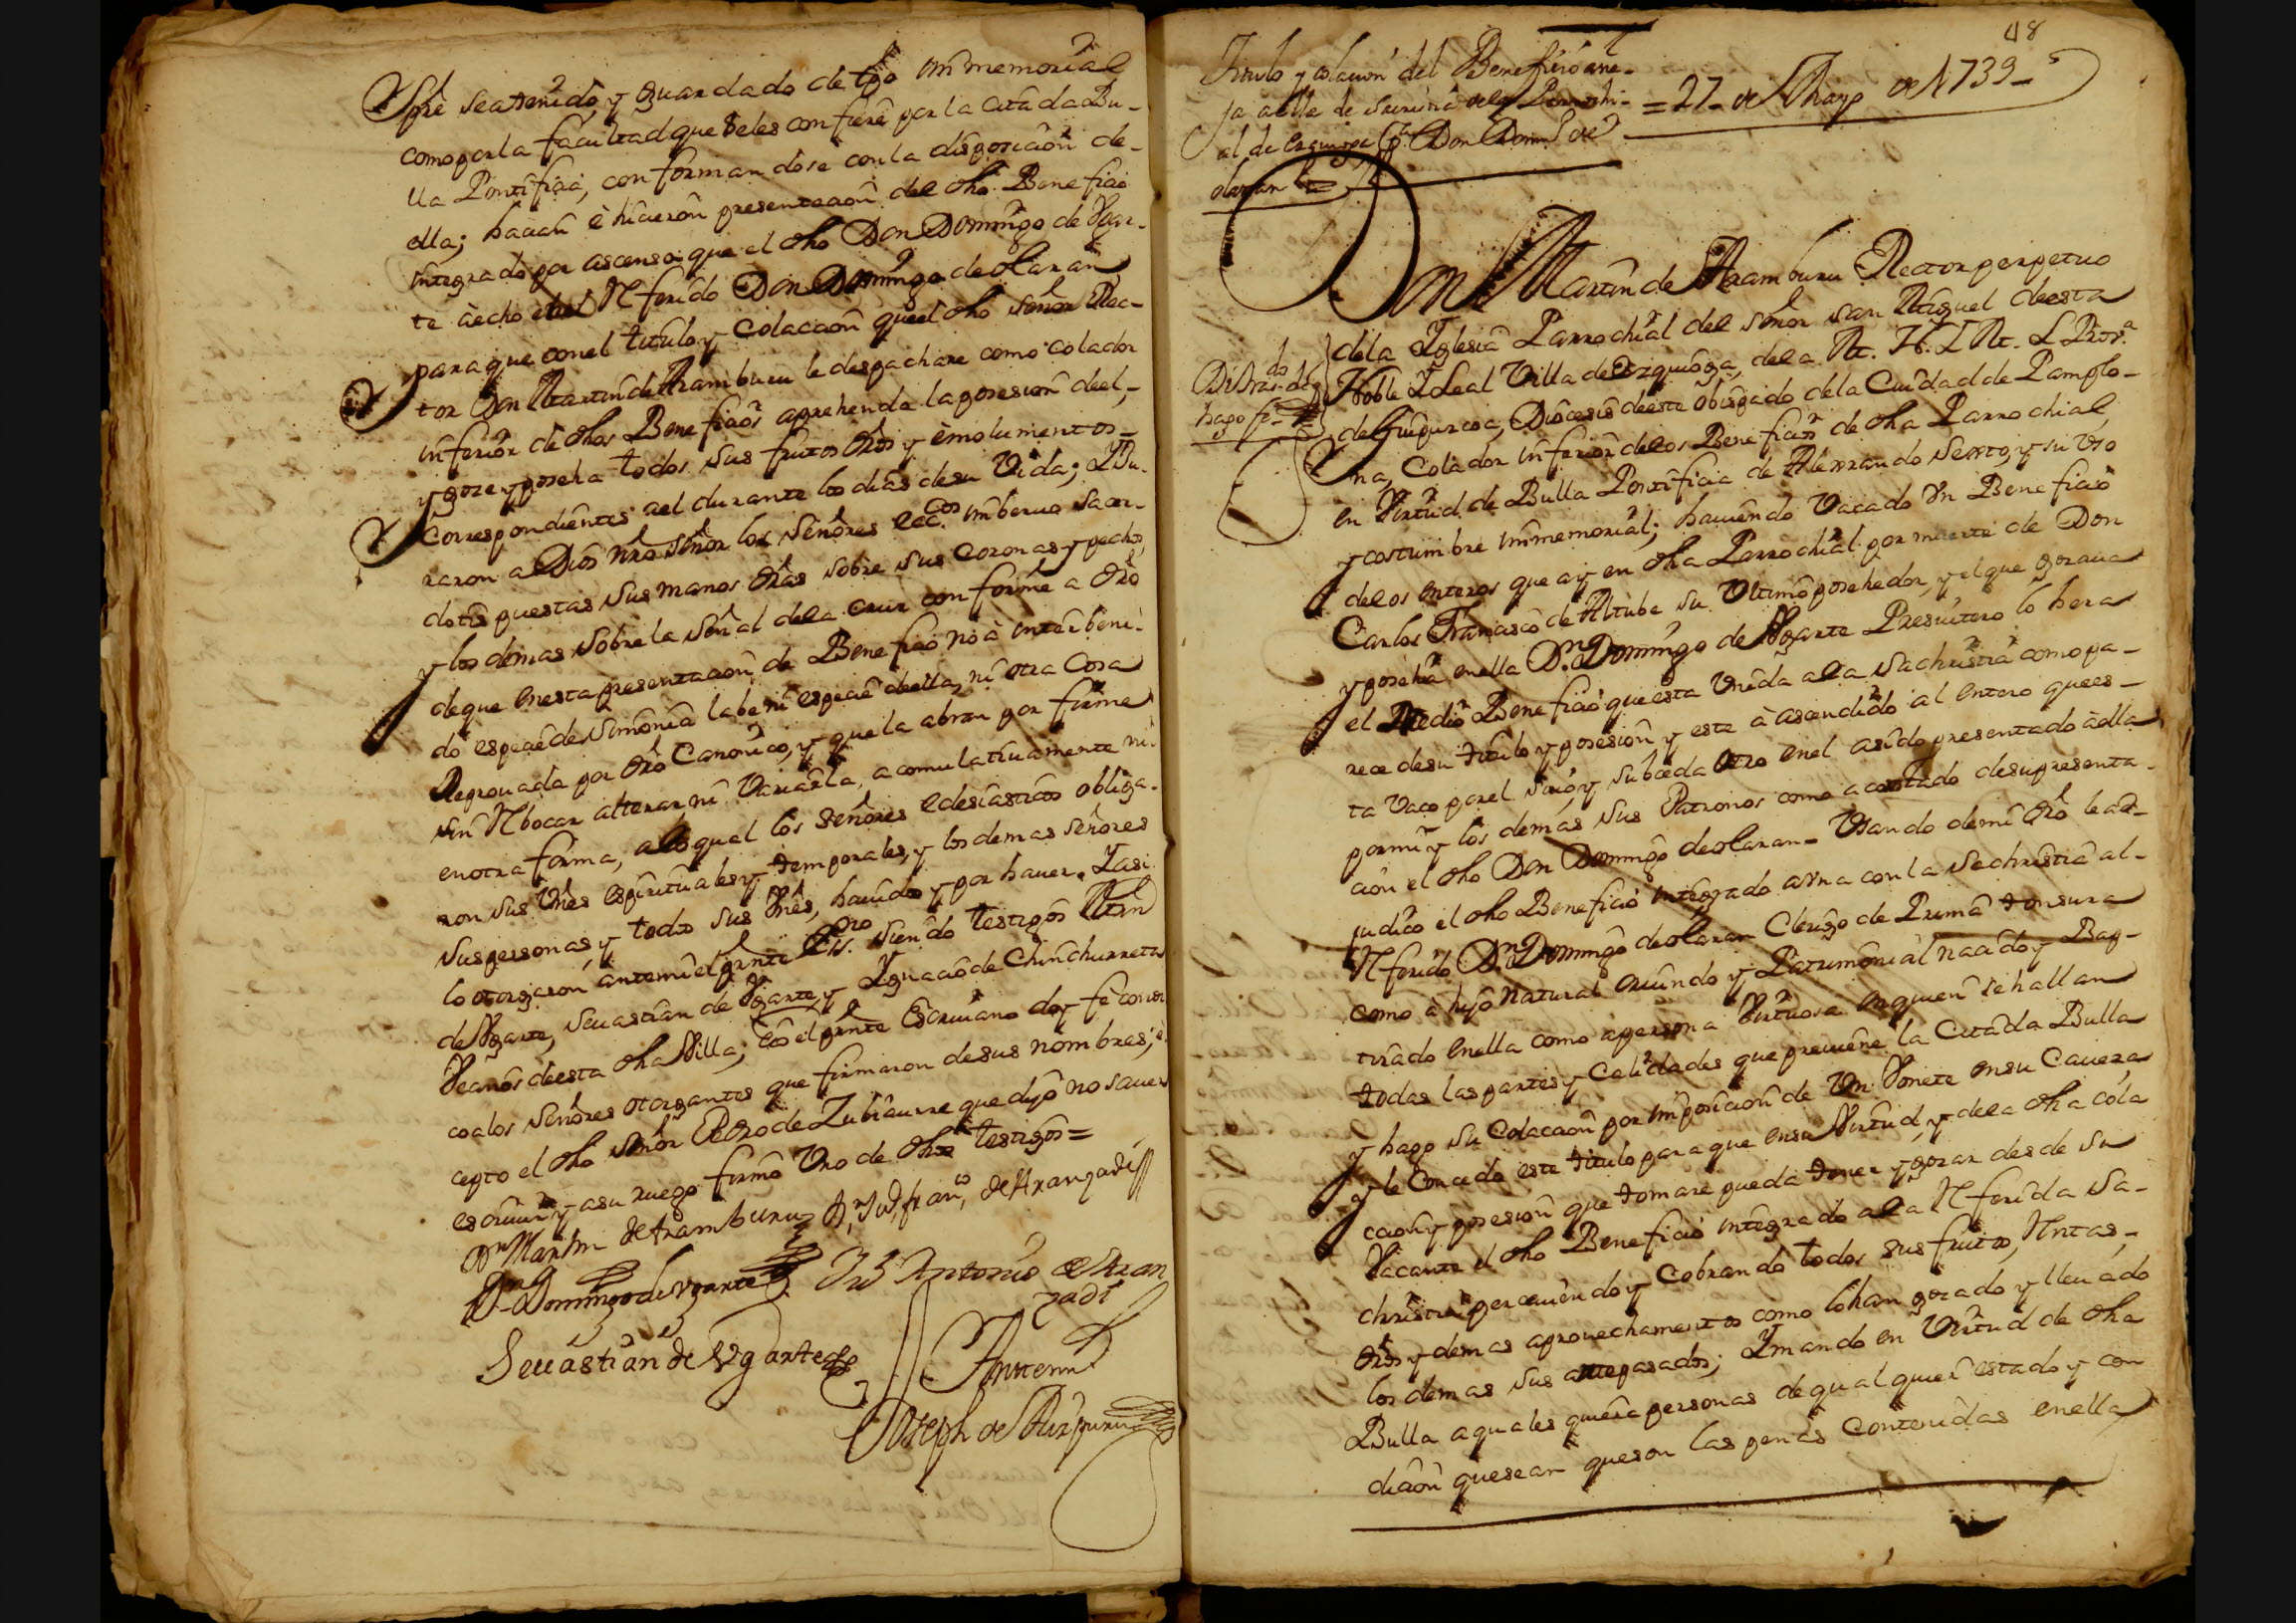 spre sea tenido, y guardado de tpo immemorial
como por la facultad que se les confiere por la citada Bu-
lla Pontificia, conformandose con la disposicion de-
ella; hacian è hicieron presentacion del dho Beneficio
integrado por ascenso que el dho Don Domingo de Vgar-
te à echo en el Rferido Don Domingo de olaran
para que con el titulo y Colacion que el dho señor Rec-
tor Don Martin de Aramburu le despachare como colador
inferior de dhos Beneficios aprehenda la posesion de el,
y goze y poseha todos sus frutos dros y emolumentos
Correspondientes a el durante los dias de su Vida; Y Ju-
raron a Dios nro señor los señores ecc.cos in beruo sacer-
dotis puestas sus manos dras sobre sus Coronas y pechos
y los demas sobre la señal de la cruz conforme a dro
de que en esta presentacion de Beneficio no à interbeni-
do especie de simonia labe ni especie de ella, ni otra Cosa
Reprouada por dro Canonico, y que la abran por firme
sin Rbocar alterar, ni Variarla, acomulatiuamente ni
en otra forma, a lo qual los señores eclesiasticos obliga-
ron sus Vnes espirituales y temporales, y los demas señores
sus personas, y todos sus Vnes, hauidos y por hauer. Y asi
lo otorgaron ante mi el pnte Esno. siendo testigos Mrn
de Vgarte, Seuastian de Vgarte, y Ygnacio de Chinchurreta
Veznos de esta dha Villa; è Yo el pnte Escriuano doy feè conoz
co a los señores otorgantes que firmaron de sus nombres; è
cepto el dho señor Pedro de Zubiaurre que dijo no sauer
escriuir y a su ruego firmò Vno de dhos testigos=
Dn Martin de Aramburu Dn Jud fran.co de Aranzadi
Dn Domingo de Vgarte Antonio de Aran
zadi
Seuastian de Vgarte
Ante mi
Joseph de Aizpuru
48
Titulo y colacion del Beneficio ane-
jo a la de Sacristia de la Parrochi- = 27 de Mayo de 1739
al de Ezquioga Pr. Don Domo de
olaran
Don Martin de Aramburu Rector perpetuo
de la Yglesia Parrochial del señor san Miguel de esta
Noble y Leal Villa de Ezquioga, de la M. N. Y M. L. Prov.a
Di tras.do
hago fe
de Guipuzcoa, Diocesis de este obispado de la Ciudad de Pamplo-
na, Colador inferior de los Beneficios de dha Parrochial
en Virtud de Bulla Pontificia de Alexandro Sexto, y su Vso
y costumbre immemorial; hauiendo Vacado Vn Beneficio
de los enteros que ay en dha Parrochial por muerte de Don
Carlos Francisco de Altube su Vltimo posehedor, y el que gozaua
y poseha en ella Dn Domingo de Vgarte Presuitero lo hera
el Medio Beneficio que esta Vnida a la Sachristia como pa-
rece de su titulo y posesion y este à ascendido al entero que es-
ta Vaco por el suio, y subceda otro en el asido presentado àella
por mi y los demas sus Patronos como a constado de su presenta-
cion el dho Don Domingo de olaran- Vsando de mi dro le ad-
judico el dho Beneficio integrado a Vna con la Sachristia al-
Rferido Dn Domingo de olaran Clerigo de Prima tonsura
como à hijo natural oriundo y Patrimonial nacido y Bap-
tizado en ella como a persona Virtuosa en quien se hallan
todas las partes y Calidades que preuiene la Citada Bulla
y hago su Colacion por imposicion de Vn Vonete en su Caueza,
y le Concedo este titulo para que en su Virtud, y de la dha cola
cion y posesion que tomare pueda tener y gozar desde su
Vacante el dho Beneficio integrado a la Rferida Sa-
christia perceuiendo y Cobrando todos sus frutos, Rntas,-
dros y demas aprouechamientos como lo han gozado y lleuado
los demas sus antepasados; Y mando en Virtud de dha
Bulla a quales quiera personas de qualquier estado y con
dicion que sean que son las penas Contenidas en ella